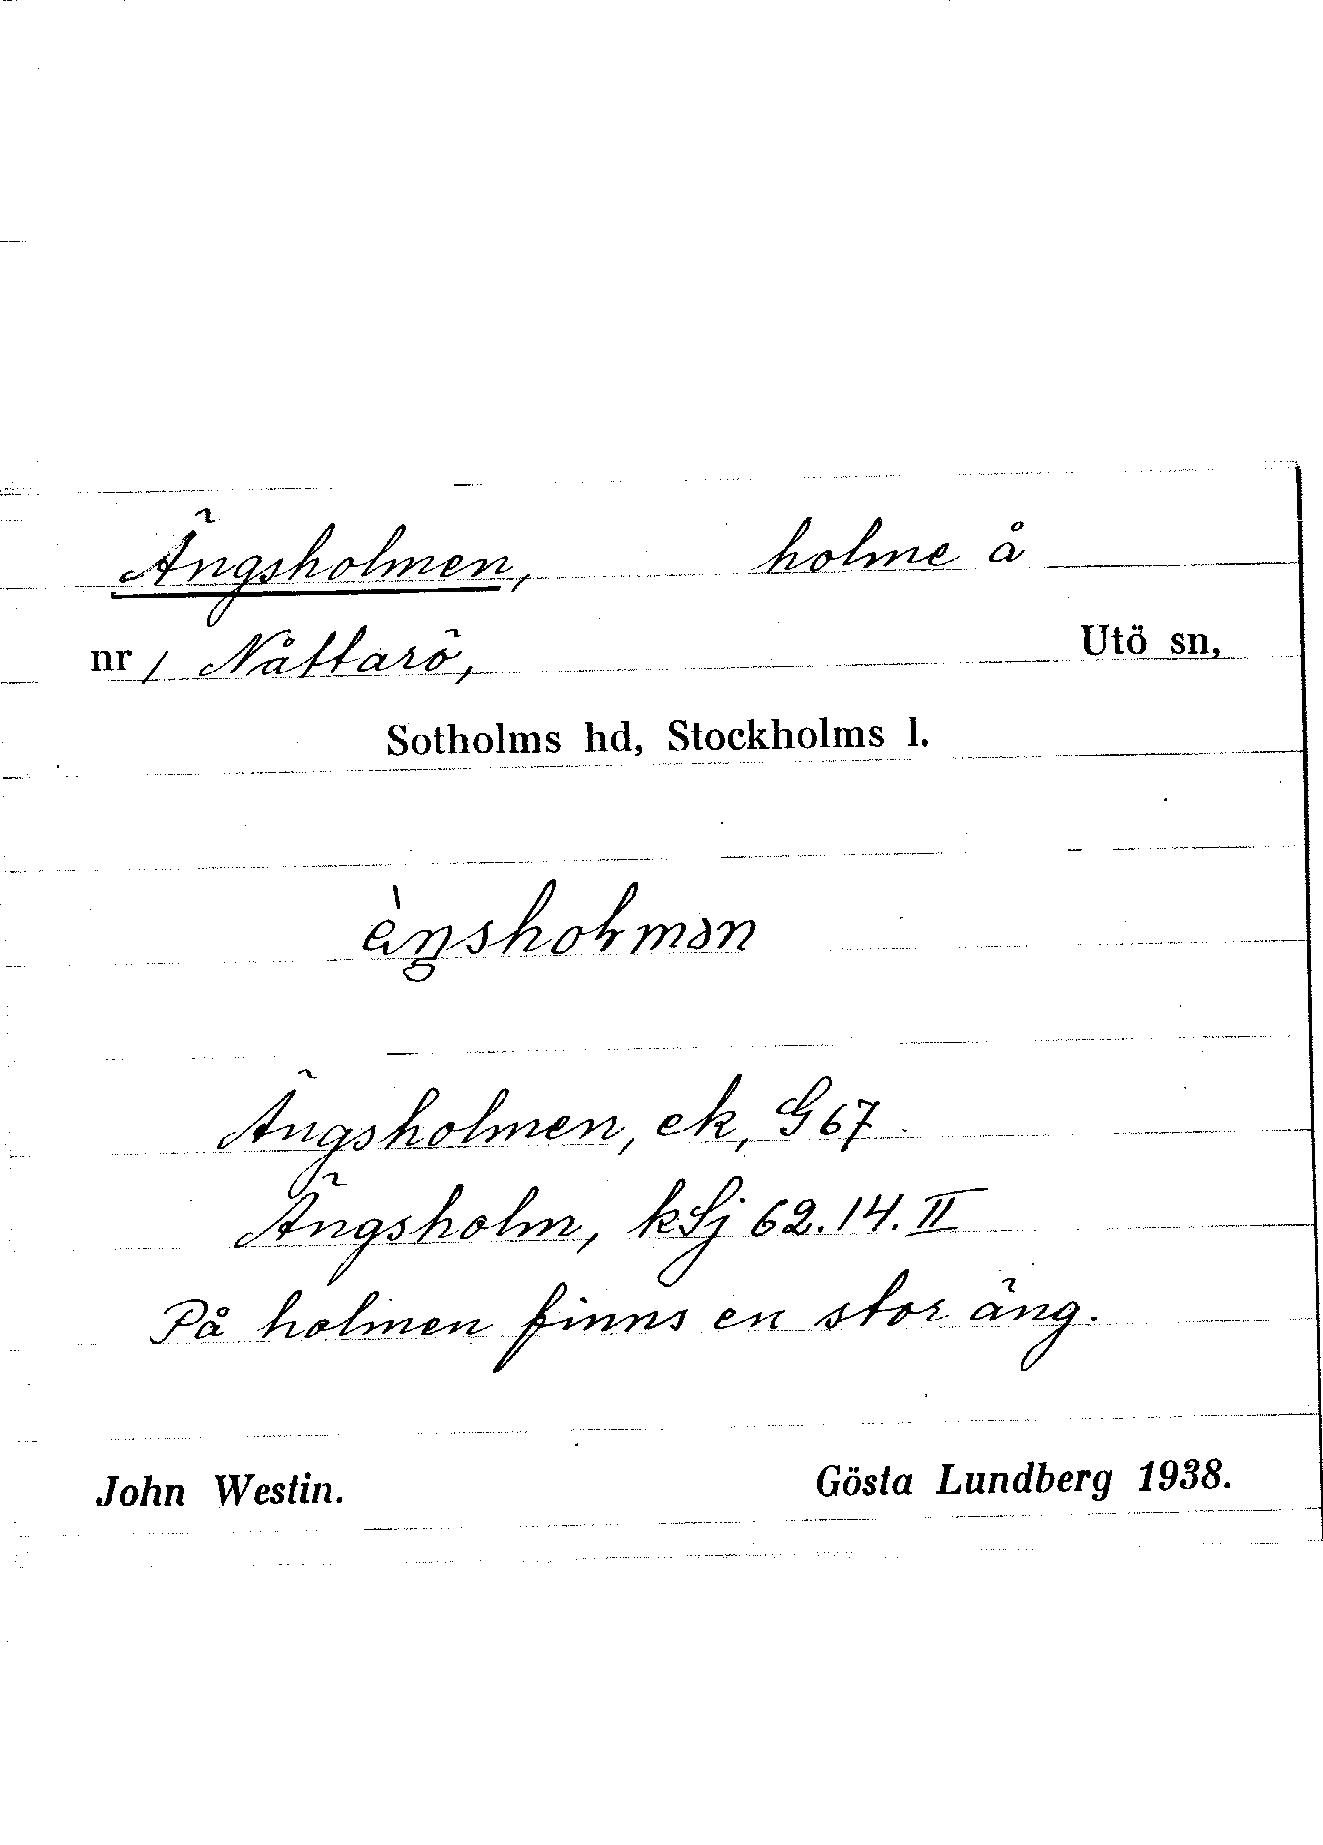 Ängsholmen, holme å
nr 1 Nåttarö, Utö sn,
Sotholms hd, Stockholms l.
Ängsholmen, ek, G 67
Ängsholm, kSj 62.14.II
På holmen finns en stor äng.
John Westin. Gösta Lundberg 1938.